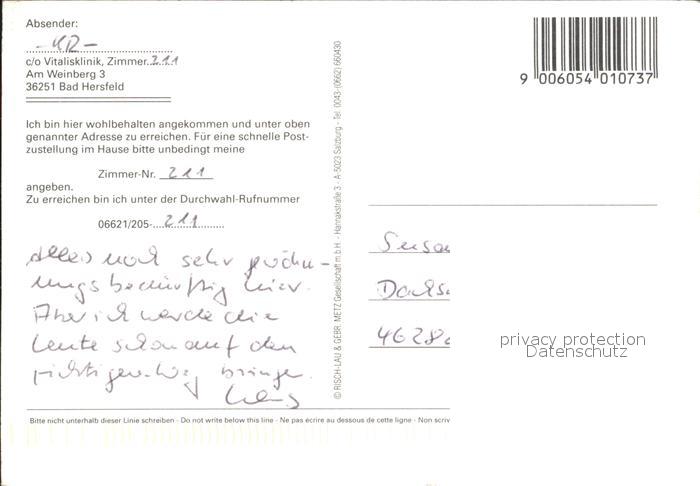 Absender:
- KR -
c/o Vitalisklinik, Zimmer 211
Am Weinberg 3
36251 Bad Hersfeld
Ich bin hier wohlbehalten angekommen und unter oben
genannter Adresse zu erreichen. Für eine schnelle Post-
zustellung im Hause bitte unbedingt meine
Zimmer-Nr. 211
angeben.
Zu erreichen bin ich unter der Durchwahl-Rufnummer
06621/205-211
Alles noch sehr gewöh-
nungsbedürftig hier.
Aber ich werde die
Leute schon auf den
richtigen Weg bringen.
© RISCH-LAU & GEBR. METZ Gesellschaft m.b.H. - Hannakstraße 3 - A-5023 Salzburg - Tel. 0043-(0662) 660430
9 006054 010737
Susan
Dachs
46286
privacy protection
Datenschutz
Bitte nicht unterhalb dieser Linie schreiben - Do not write below this line - Ne pas écrire au dessous de cette ligne - Non scriv